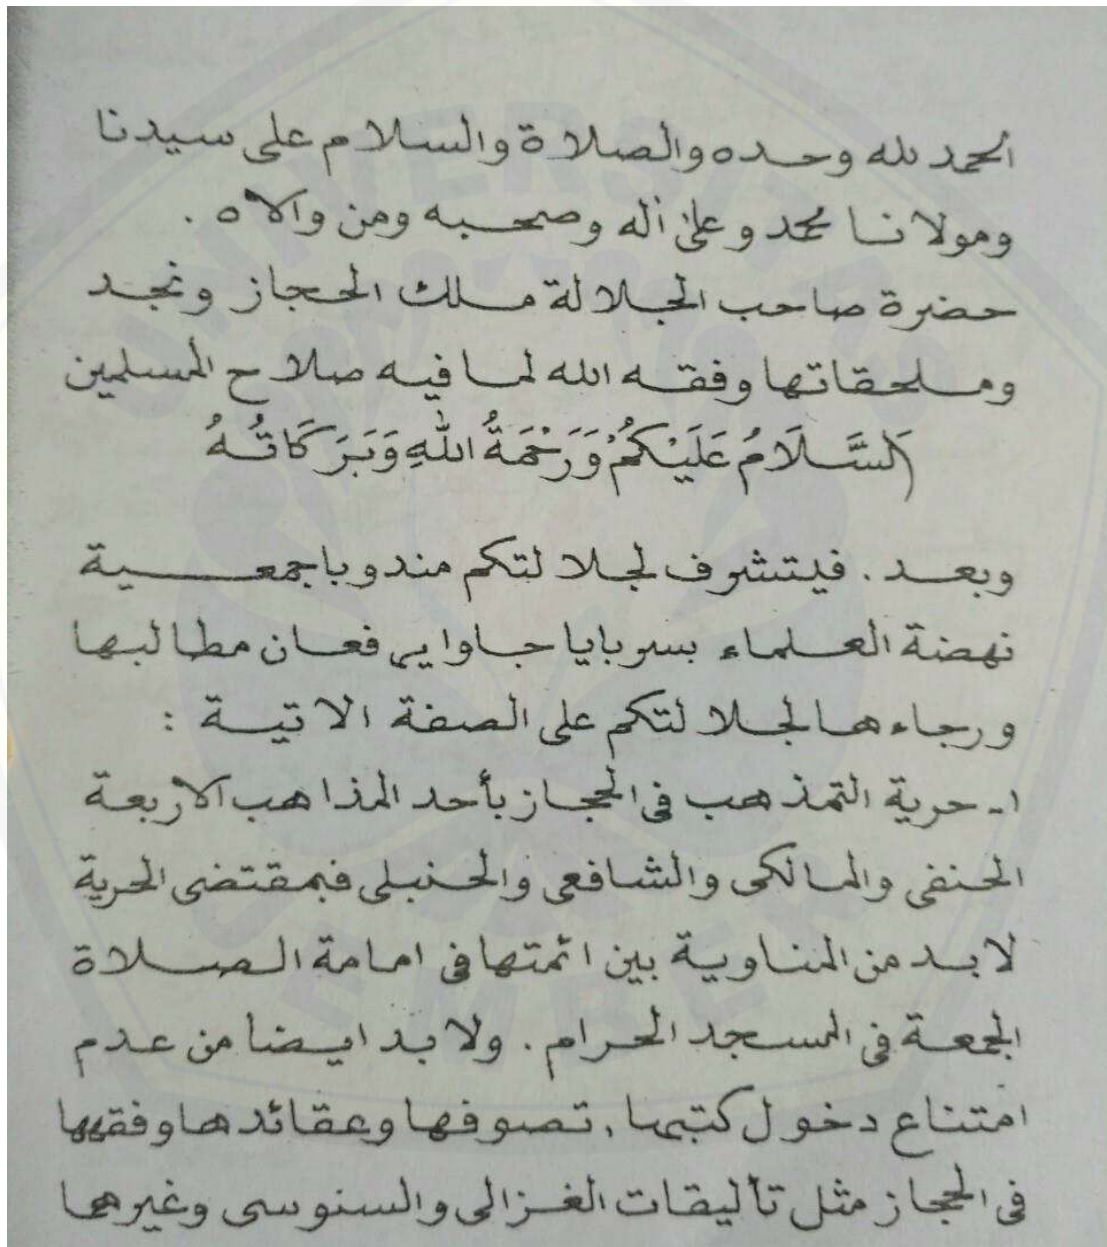 الحمد لله وحده والصلاة والسلام على سيدنا
ومولانا محمد وعلى أله وصحبه ومن والاه .
حضرة صاحب الجلالة ملك الحجاز ونجد
وملحقاتها وفقه الله لما فيه صلاح المسلمين
اَلسَّلَامُ عَلَيْكُمْ وَرَحْمَةُ اللهِ وَبَرَكَاتُهُ
وبعد . فيتشرف لجلالتكم مندوبا جمعية
نهضة العلماء بسربايا جاوا يرفعان مطالبها
ورجاءها لجلالتكم على الصفة الاتية :
١- حرية التمذهب فى الحجاز بأحد المذاهب الاربعة
الحنفى والمالكى والشافعى والحنبلى فبمقتضى الحرية
لابد من المناوية بين ائمتها فى امامة الصلاة
الجمعة فى المسجد الحرام . ولابد ايضا من عدم
امتناع دخول كتبها , تصوفها وعقائدها وفقهها
فى الحجاز مثل تأليقات الغزالى والسنوسى وغيرهما
UNIVERSITAS
JEMBER